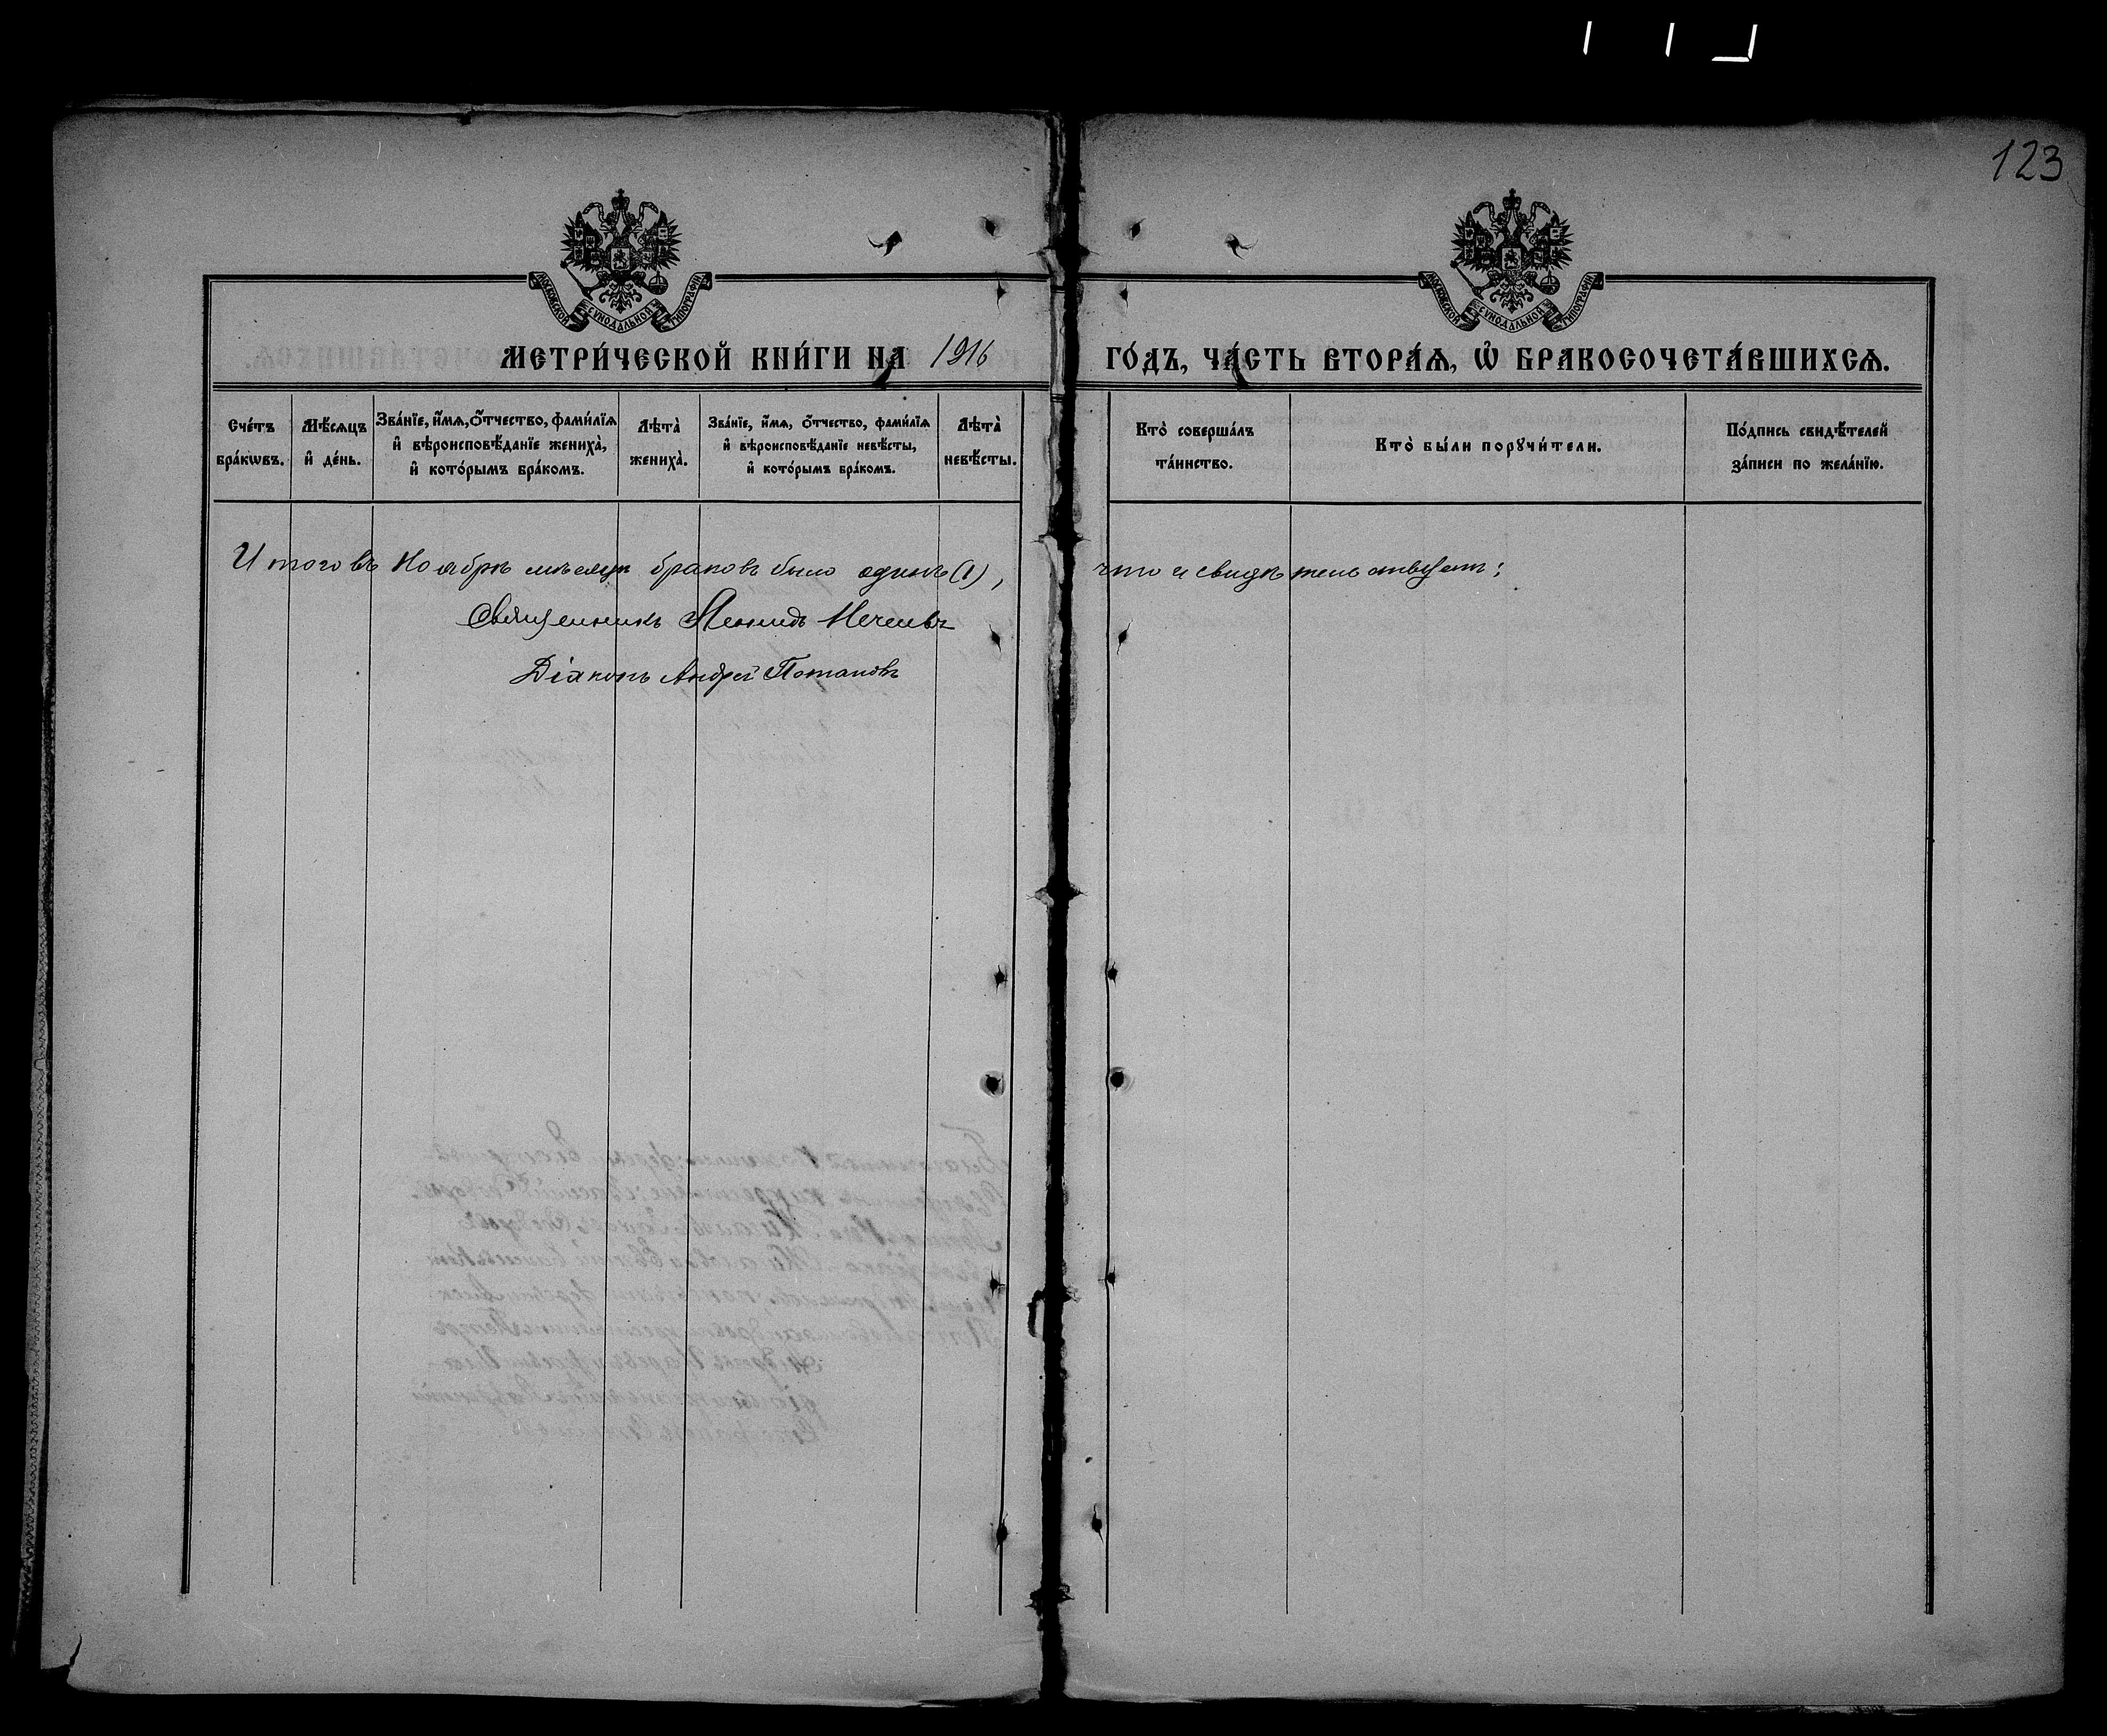 123
МОСКОВСКОЙ СѴНОДАЛЬНОЙ ТИПОГРАФІИ
МОСКОВСКОЙ СѴНОДАЛЬНОЙ ТИПОГРАФІИ
МЕТРИ́ЧЕСКОЙ КНИ́ГИ НА 1916 ГО́ДЪ, ЧА́СТЬ ВТОРА́Ѧ, Ѡ҆ БРАКОСОЧЕТА́ВШИХСѦ.
Сче́тъ бра́кѡвъ.
Мѣ́сѧцъ и҆ де́нь.
Зва́нїе, и҆́мѧ, ѻ҆́тчество, фами́лїѧ и҆ вѣроисповѣ́данїе жениха̀, и҆ кото́рымъ бра́комъ.
Лѣта̀ жениха̀.
Зва́нїе, и҆́мѧ, ѻ҆́тчество, фами́лїѧ и҆ вѣроисповѣ́данїе невѣ́сты, и҆ кото́рымъ бра́комъ.
Лѣта̀ невѣ́сты.
Кто̀ соверша́лъ та́инство.
Кто̀ бы́ли порꙋчи́тели.
По́дпись свидѣ́телей за́писи по жела́нїю.
Итого въ Ноябрѣ мѣсяцѣ браковъ было одинъ (1), что и свидѣтельствуемъ:
Священникъ Леонидъ
Діаконъ Андрей Потаповъ